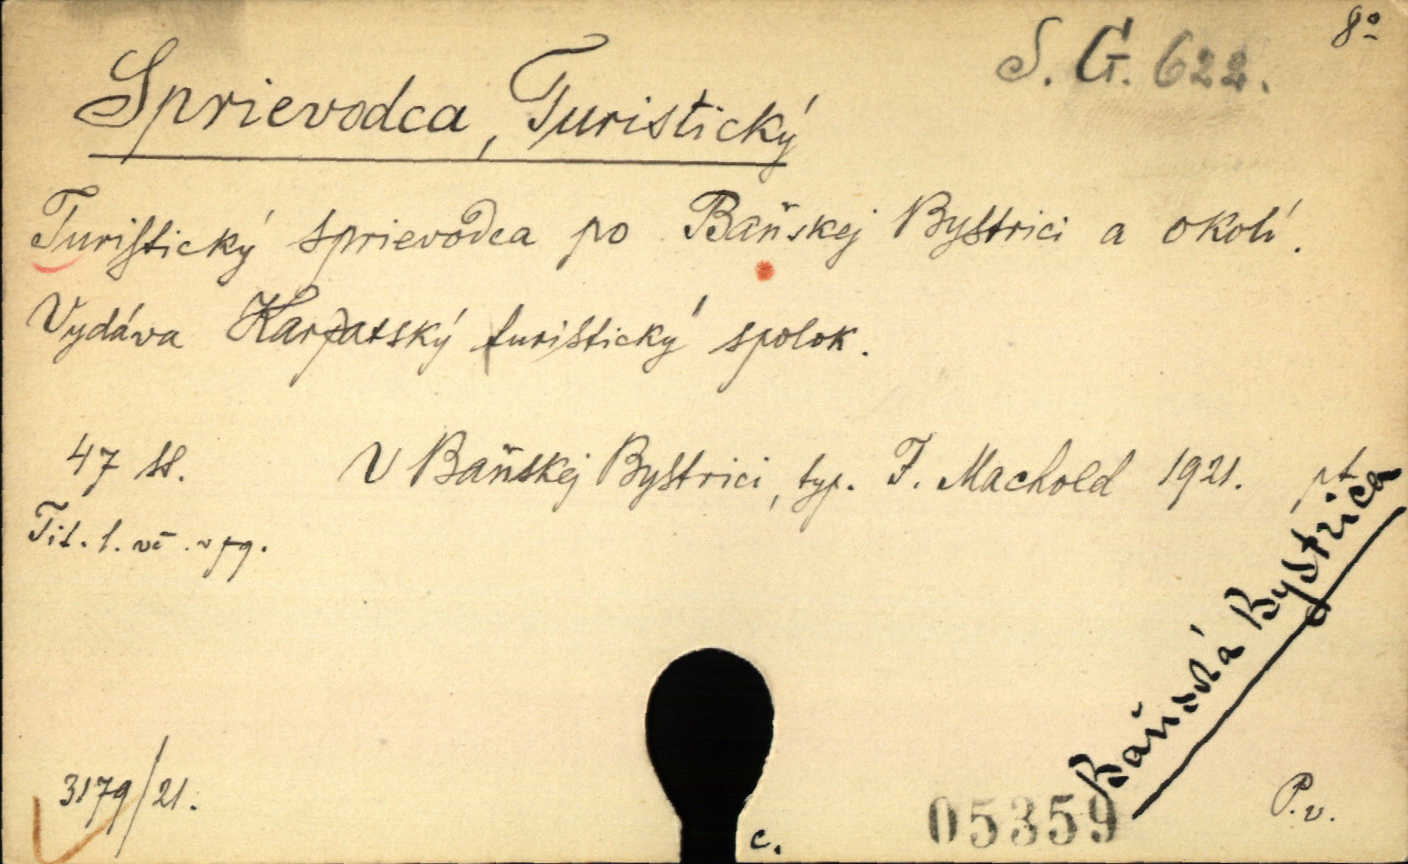 8º
S. G. 622.
Sprievodca, Turistický
Turistický sprievodca po Baňskej Bystrici a okolí.
Vydáva Karpatský turistický spolok.
47 ss. V Baňskej Bystrici, typ. F. Machold 1921. pt
Tit. l. vč. v pg.
Baňská Bystrica
3179/21.
c.
05359
P.v.